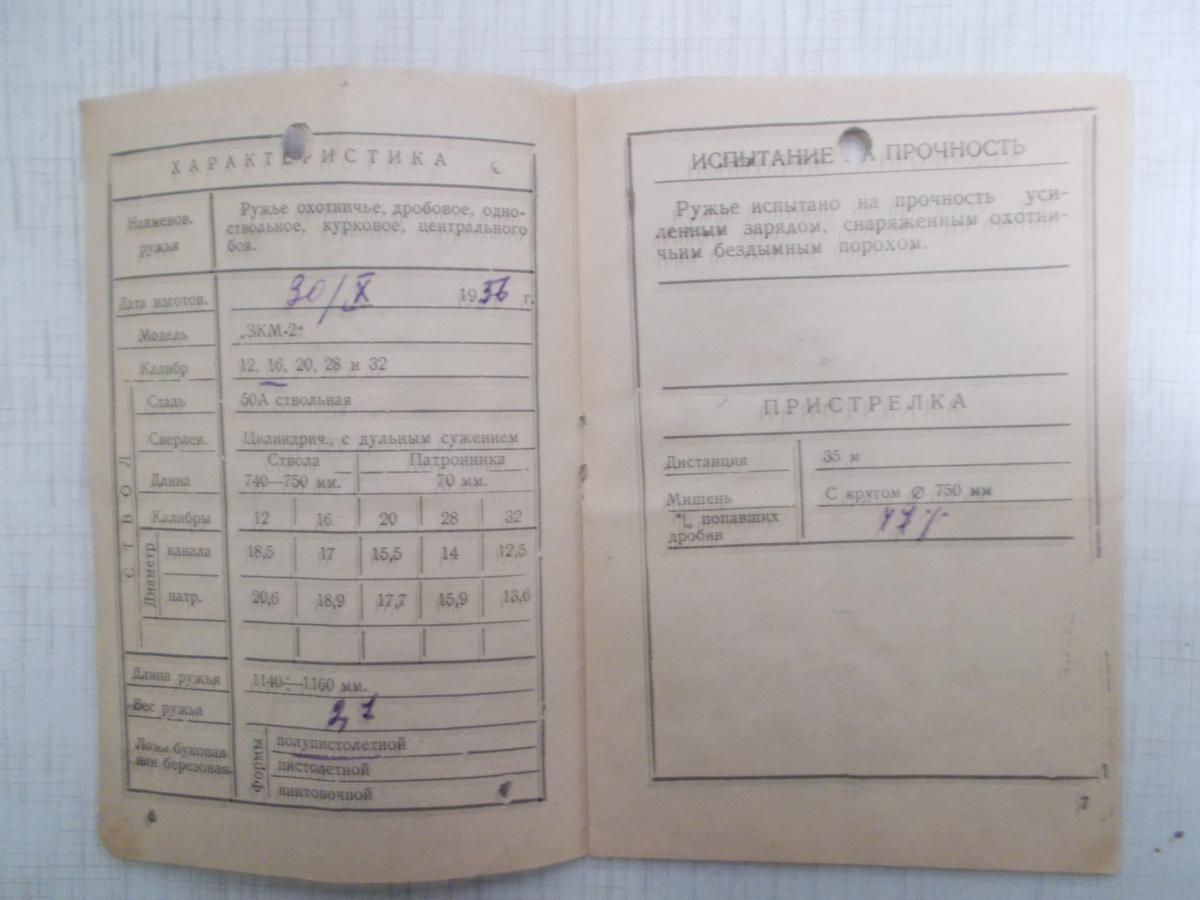 ХАРАКТЕРИСТИКА
Наименов. ружья
Ружье охотничье, дробовое, одно-
ствольное, курковое, центрального
боя.
Дата изготов. 30/X 1956 г.
Модель „ЗКМ-2“
Калибр 12, 16, 20, 28 и 32
СТВОЛ
Сталь 50А ствольная
Сверлен. Цилиндрич., с дульным сужением
Длина
Ствола Патронника
740—750 мм. 70 мм.
Калибры 12 16 20 28 32
Диаметр
канала 18,5 17 15,5 14 12,5
патр. 20,6 18,9 17,7 15,9 13,6
Длина ружья 1140—1160 мм.
Вес ружья 2,7
Ложа буковая
или березовая
Формы
полупистолетной
пистолетной
винтовочной
6
ИСПЫТАНИЕ НА ПРОЧНОСТЬ
Ружье испытано на прочность уси-
ленным зарядом, снаряженным охотни-
чьим бездымным порохом.
ПРИСТРЕЛКА
Дистанция 35 м
Мишень С кругом ⌀ 750 мм
% попавших
дробин
7